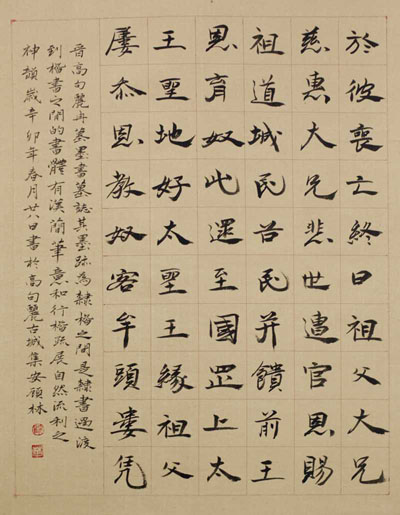 於彼喪亡終日祖父大兄
慈惠大兄悲世遣官恩賜
祖道城民谷民并饋前王
恩育奴此遝至國罡上太
王聖地好太聖王緣祖父
屡忝恩教奴客牟頭婁凭
晉高句麗冉墓墨書墓誌其墨跡為隸楷之間是隸書過渡
到楷書之間的書體有漢簡筆意和行楷跡展自然流利之
神韻歲辛卯年春月廿八日書於高句麗古城集安顧林